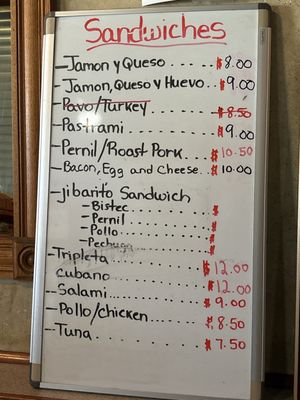 Sandwiches
-Jamon y Queso ..... $8.00
-Jamon, Queso y Huevo. $9.00
-Pavo/Turkey ....... $8.50
-Pastrami ......... $9.00
-Pernil/Roast Pork. $10.50
-Bacon, Egg and Cheese.. $10.00
-jibarito Sandwich
-Bistec ......... $
-Pernil ......... $
-Pollo ......... $
-Pechuga ......... $
-Tripleta ......... $12.00
cubano ......... $12.00
-Salami ......... $9.00
-Pollo/chicken ....... $8.50
-Tuna ......... $7.50